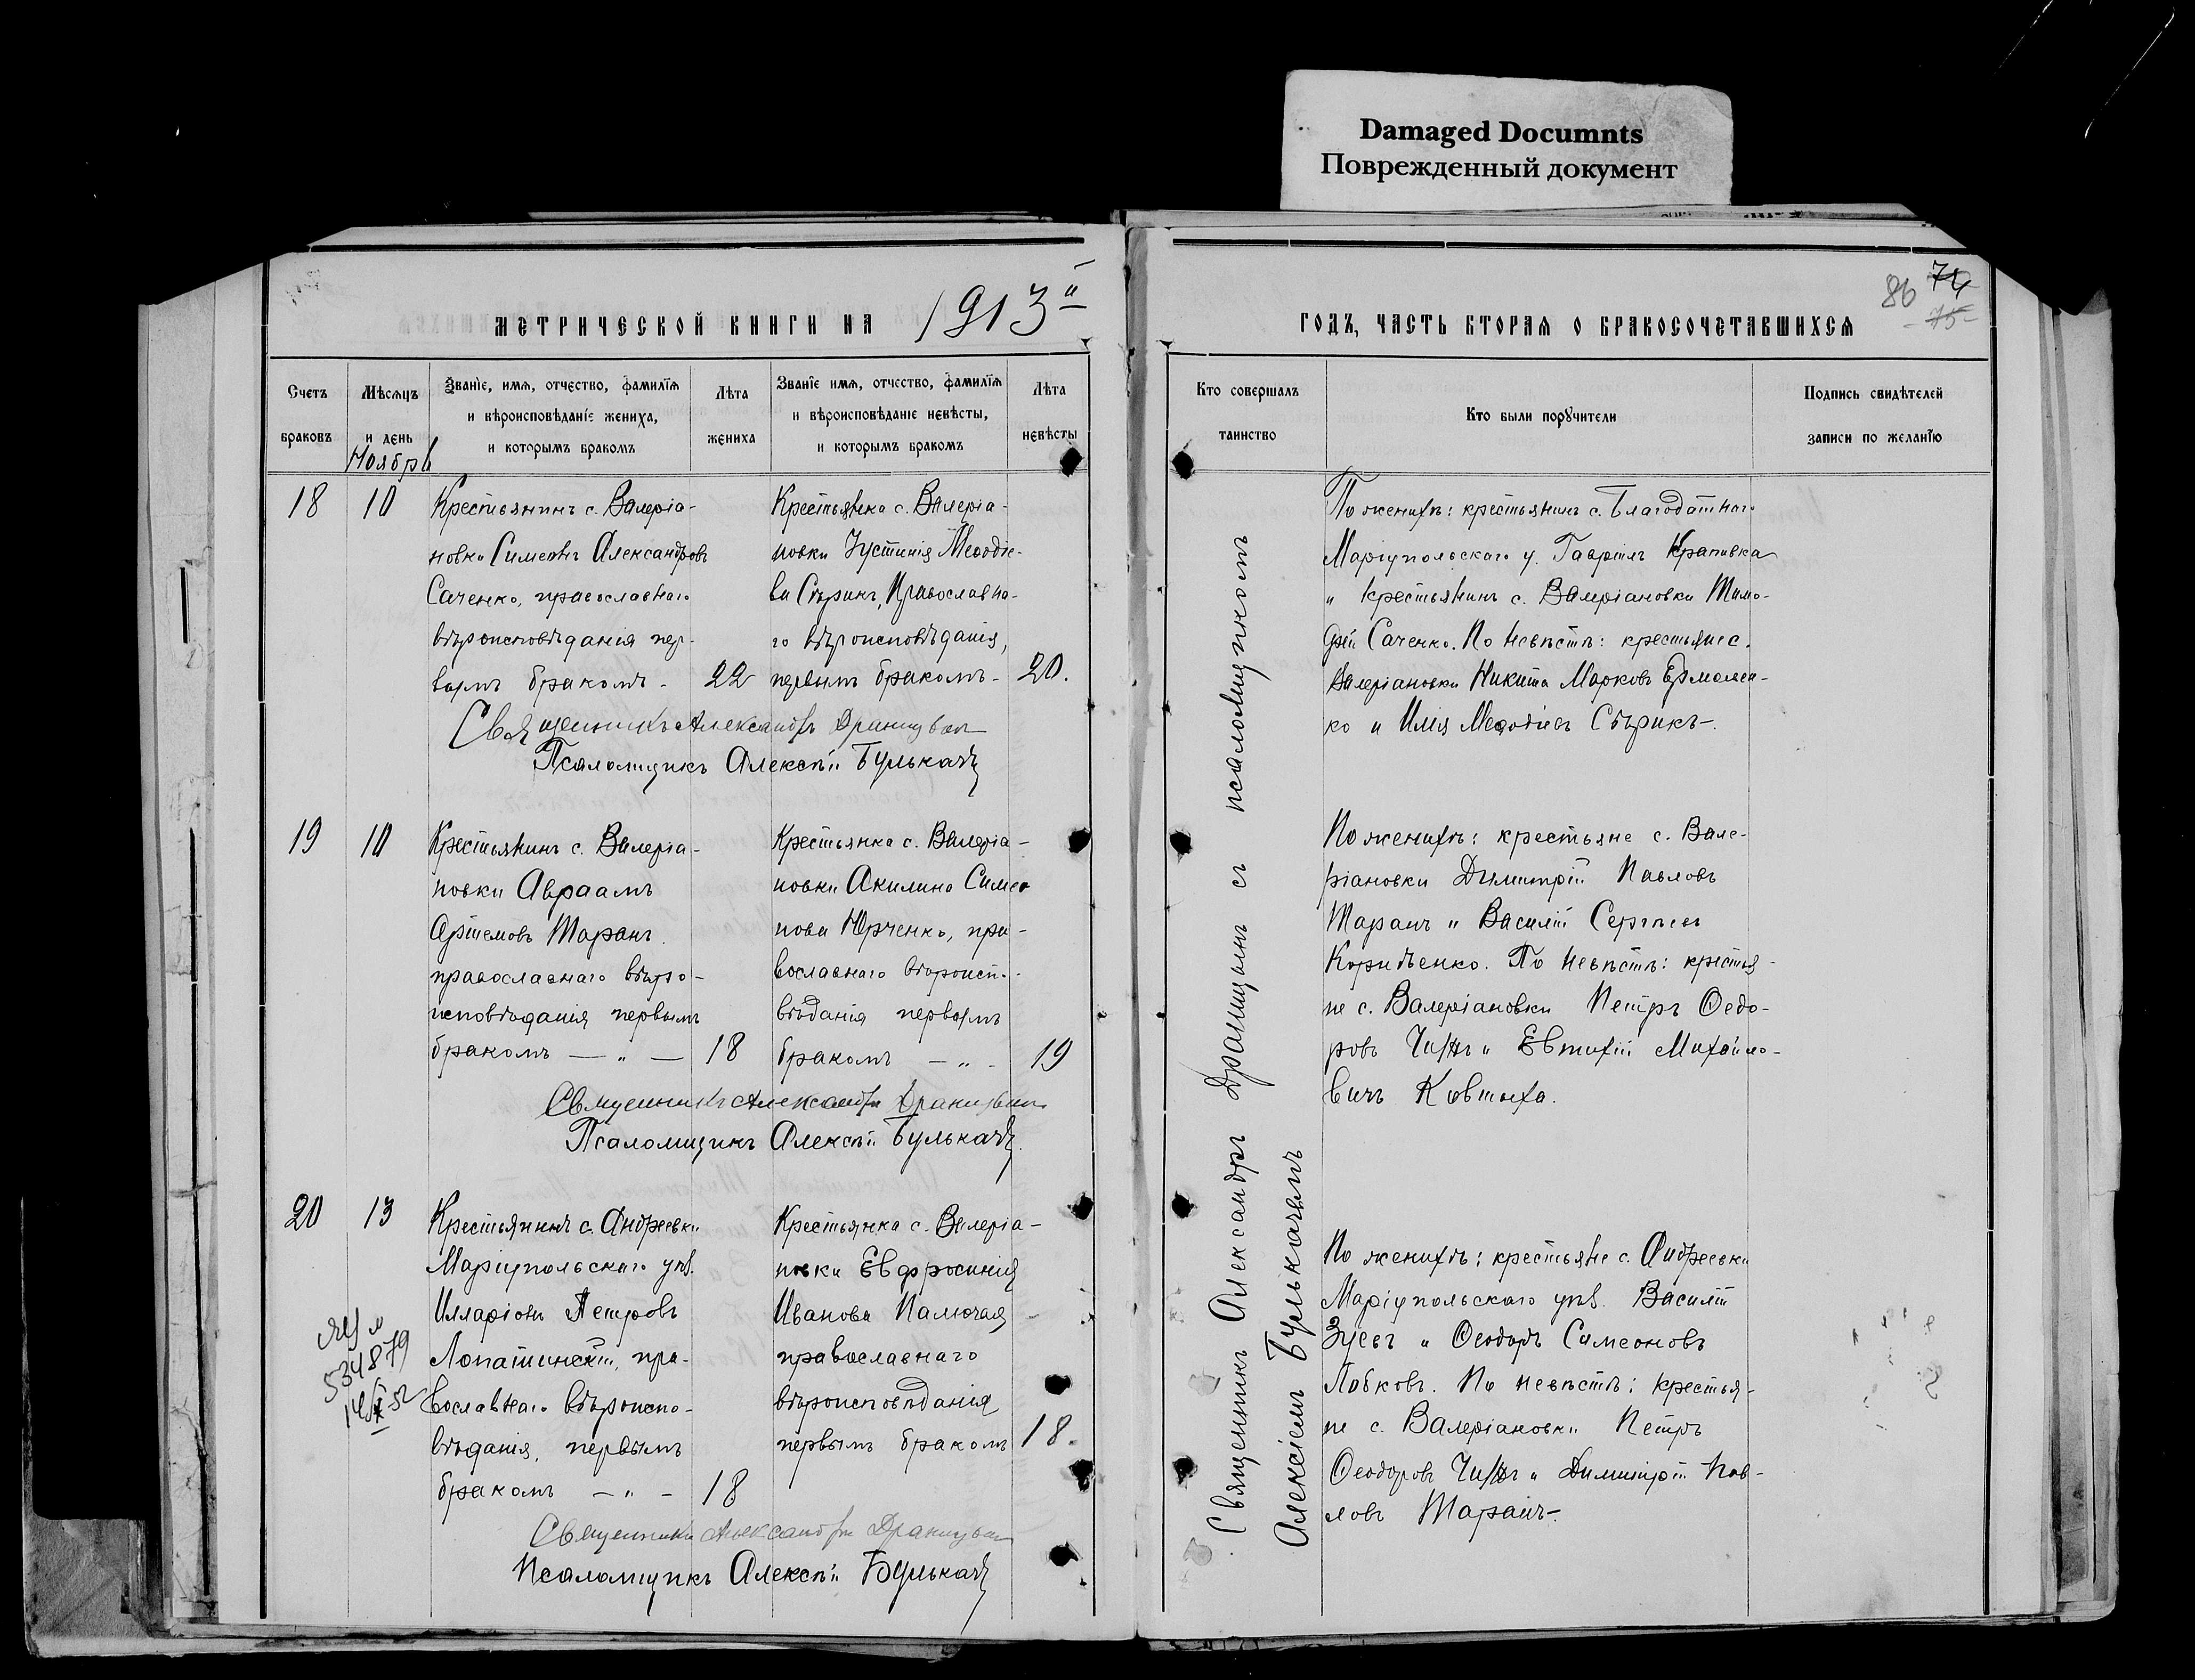 Damaged Documnts
Поврежденный документ
метрической книги на 1913й
годъ, часть вторая о бракосочетавшихся
86 74
75
Счетъ
браковъ
Мѣсяцъ
и день
Ноябрь
Званіе, имя, отчество, фамилія
и вѣроисповѣданіе жениха,
и которымъ бракомъ
Лѣта
жениха
Званіе имя, отчество, фамилія
и вѣроисповѣданіе невѣсты,
и которымъ бракомъ
Лѣта
невѣсты
Кто совершалъ
таинство
Кто были поручители
Подпись свидѣтелей
записи по желанію
18
10
Крестьянинъ с. Валеріа-
новки Симеонъ Александровъ
Саченко, православнаго
вѣроисповѣданія пер-
вымъ бракомъ -
22
Крестьянка с. Валеріа-
новки Іустинія Меѳодіе-
ва Сѣрикъ, Православна-
го вѣроисповѣданія,
первымъ бракомъ -
20.
Священникъ Александръ Драницынъ
Псаломщикъ Алексѣй Булькачъ
По женихѣ: крестьянинъ с. Благодатнаго
Маріупольскаго у. Гавріилъ Крапивка
и крестьянинъ с. Валеріановки Тимо-
фей Саченко. По невѣстѣ: крестьяне с.
Валеріановки Никита Марковъ Ермолен-
ко и Илія Меѳодіевъ Сѣрикъ -.
19
10
Крестьянинъ с. Валеріа-
новки Авраамъ
Артемовъ Таранъ
православнаго вѣро-
исповѣданія первымъ
бракомъ — „ —
18
Крестьянка с. Валеріа-
новки Акилина Симео
нова Юрченко, пра-
вославнаго вѣроиспо-
вѣданія первымъ
бракомъ — „ -
19
Священникъ Александръ Драницынъ
Псаломщикъ Алексѣй Булькачъ
По женихѣ: крестьяне с. Вале-
ріановки Димитрій Павловъ
Таранъ и Василій Сергѣевъ
Корніенко. По невѣстѣ: крестья-
не с. Валеріановки Петръ Ѳедо-
ровъ и Евтихій Михайло-
вичъ Ковтыха.
20
13
Крестьянинъ с. Андреевки
Маріупольскаго уѣз.
Илларіонъ Петровъ
Лопатинскій, пра-
вославнаго вѣроиспо-
вѣданія, первымъ
бракомъ — „ —
18
534879
Крестьянка с. Валеріа-
новки Евфросинія
Иванова Палючая
православнаго
вѣроисповѣданія
первымъ бракомъ
18.
Священникъ Александръ Драницынъ
Псаломщикъ Алексѣй Булькачъ
По женихѣ: крестьяне с. Андреевки
Маріупольскаго уѣз. Василій
Зуевъ и Ѳеодоръ Симеоновъ
Лобковъ. По невѣстѣ: крестья-
не с. Валеріановки Петръ
Ѳеодоровъ и Димитрій Пав-
ловъ Таранъ -.
Священникъ Александръ Драницынъ съ псаломщикомъ
Алексіемъ Булькачемъ